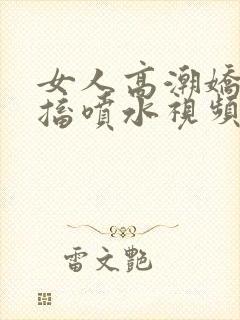 女人高潮嬌
搐噴水視頻
雷文艷